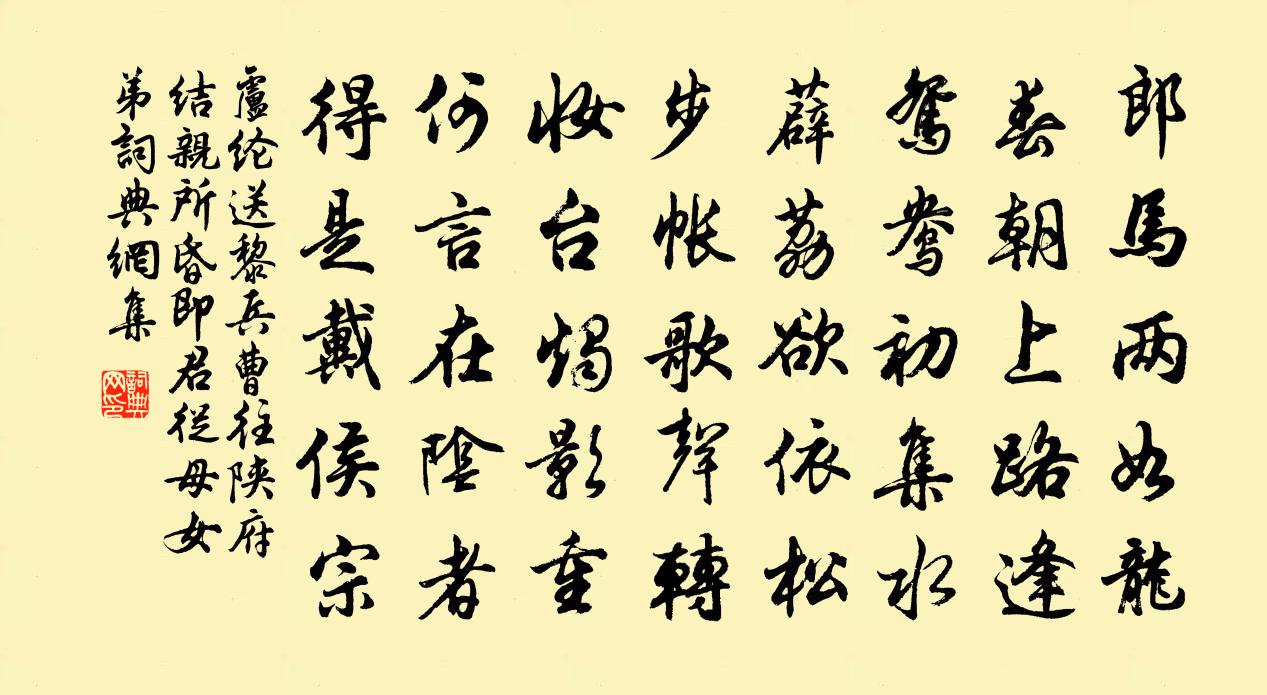 郎馬两如龍
春朝上路逢
鴛鴦初集水
薜荔欲依松
步帳歌聲轉
妝台燭影重
何言在陰者
得是戴侯宗
盧纶送黎兵曹往陝府
结親所昏即君從母女
弟詞典網集
詞典网印